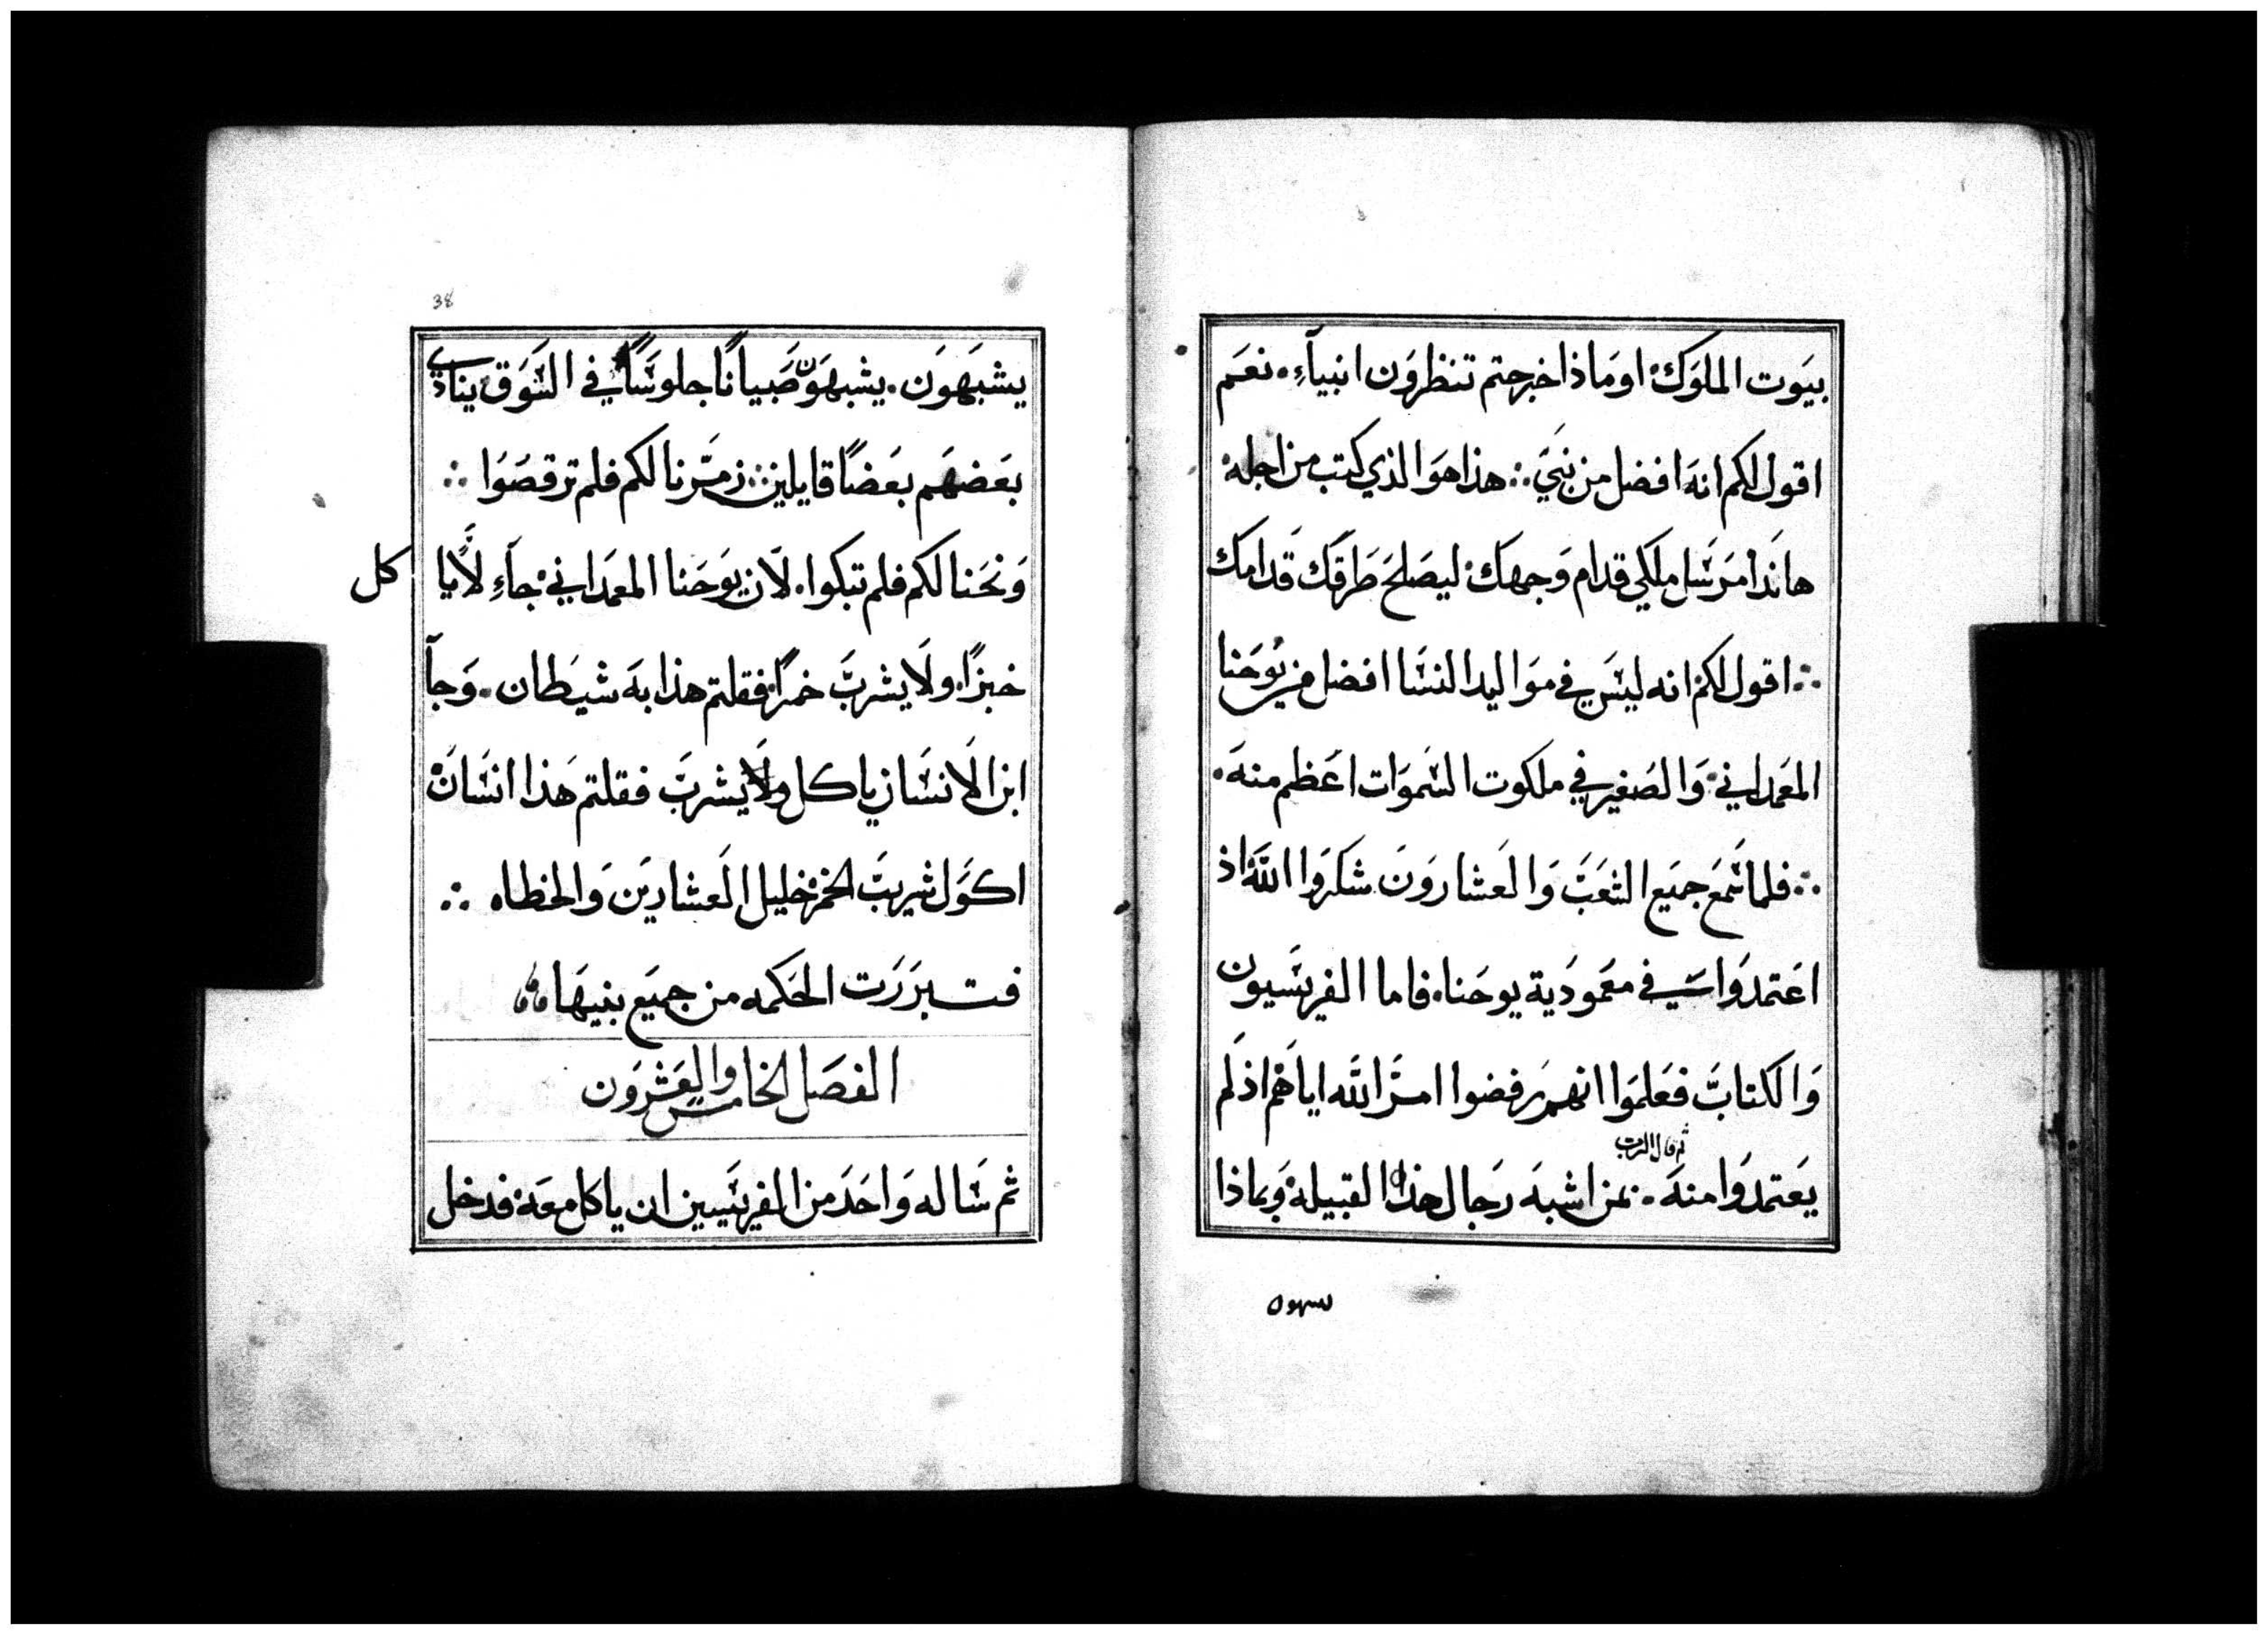 بيوت الملوك. او ماذا خرجتم تنظرون انبيآء. نعم
اقول لكم انه افضل من نبي ∴ هذا هو الذي كتب من اجله
هانذا مرسل ملكي قدام وجهك. ليصلح طرقك قدامك
∴ اقول لكم انه ليس في مواليد النسا افضل من يوحنا
المعمداني. والصغير في ملكوت السموات اعظم منه.
∴ فلما سمع جميع الشعب والعشارون شكروا الله اذ
اعتمدوا في معمودية يوحنا. فاما الفريسيون
والكتاب فعلموا انهم رفضوا امر الله اياهم اذ لم
ثم قال الرب
يعتمدوا منه. بمن اشبه رجال هذا القبيلة وبماذا
يشبهون
38
يشبهون. يشبهون صبيانا جلوسًا في السوق ينادي
بعضهم بعضًا قايلين ∴ زمّرنا لكم فلم ترقصوا ∴
ونحنا لكم فلم تبكوا. لان يوحنا المعمداني جآء لا يا
كل
خبزًا. ولا يشرب خمرًا. فقلتم هذا به شيطان. وجآ
ابن الانسان ياكل ولا يشرب فقلتم هذا انسان
اكول شريب الخمر خليل العشارين والخطاه ∴
فتبررت الحكمه من جميع بنيها
الفصل الخامس والعشرون
ثم ساله واحد من الفريسيين ان ياكل معه فدخل